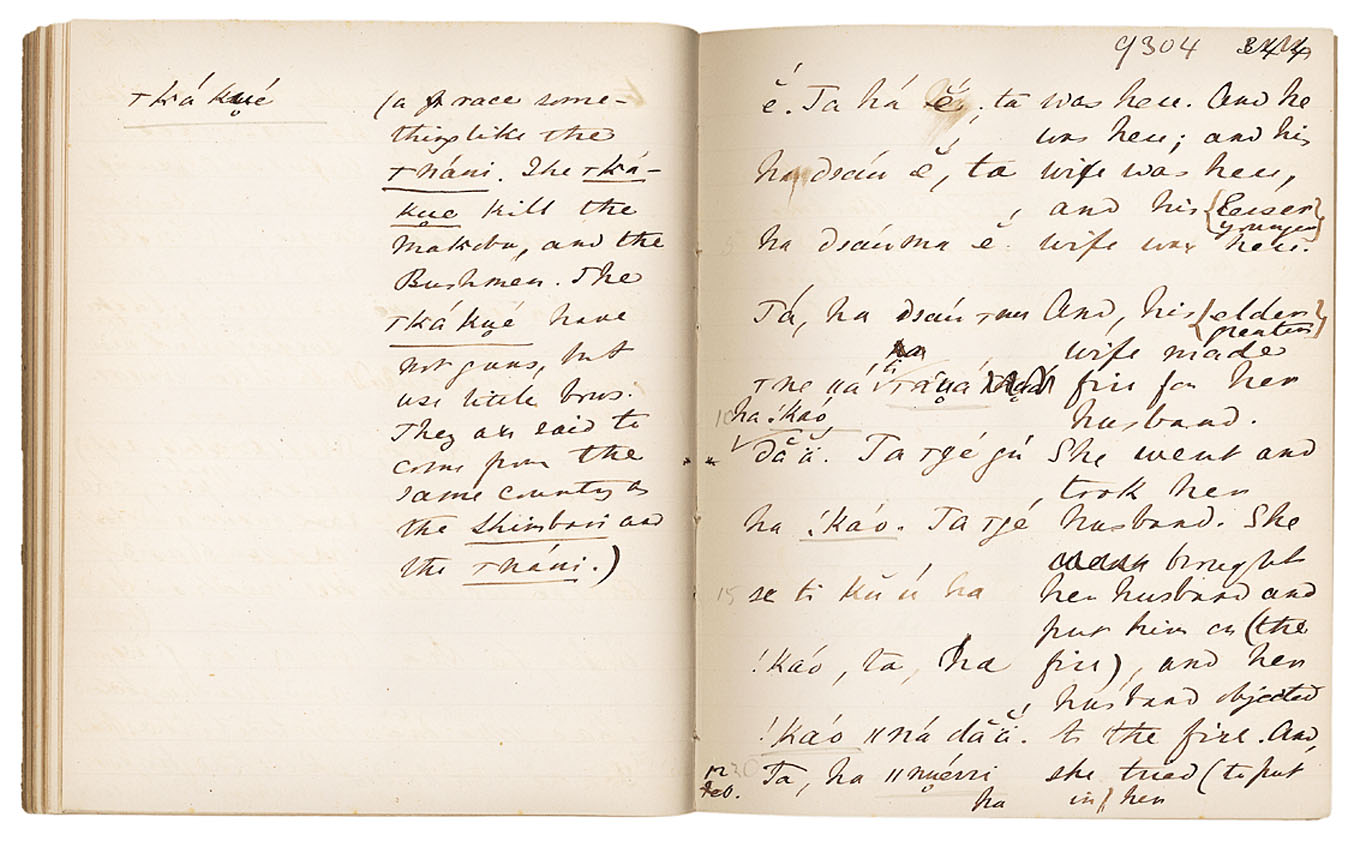 ꞱKá kụé (a race some-
thing like the
Ʇnáni. The Ʇká-
kụe kill the
Makoba, and the
Bushmen. The
Ʇká kụé have
not guns, but
use little bows.
They are said to
come from the
same country as
the Shimbari and
the Ʇnáni.)
9304
é. Ta há ĕ́, ta was here. And he
was here; and his
ha dsáú ĕ́, ta wife was here,
and his {lesser
younger}
ha dsáúma ĕ́. wife was here.
Tá, ha dsáú And, his {elder
greater}
wife made
Ʇne ǁá ti fire for her
10 ha ǃkáó husband.
dắă. Ta Ʇgé gú She went and
took her
ha ǃkáo. Ta Ʇgé husband. She
brought
15 se ti kŭ ú ha her husband and
put him on (the
ǃkáó, ta, ha fire), and her
husband objected
ǃkáó ǁná dắă. to the fire. And,
Ta, ha ǁnụérri she tried (to put
ha in) her